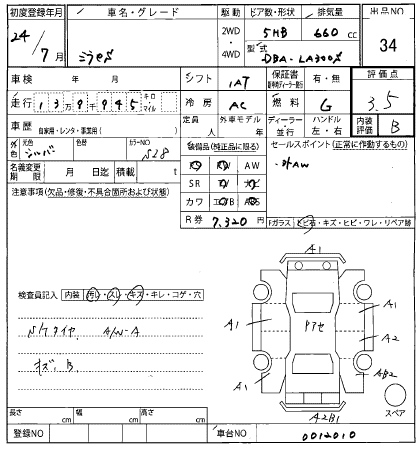 初度登録年月
車名・グレード
駆動
ドア数・形状
排気量
出品NO
24/7月
ミライース
2WD
・
4WD
5HB
660 cc
型式
DBA-LA300S
34
車検 年 月
シフト
IAT
保証書
有・無
評価点
3.5
走行 139945 キロ・マイル
冷房
AC
燃料
G
車歴
自家用・レンタ・事業用( )
定員
人
外車モデル
年
ディーラー
並行
ハンドル
左・右
内装評価
B
外色
元色
シルバー
色替
カラーNO
S28
装備品(純正品に限る)
セールスポイント(正常に作動するもの)
・外AW
名義変更期限
月 日迄
積載
t
AW
SR
カワ
注意事項(欠品・修復・不具合箇所および状態)
R券
7,320円
Fガラス
ビ石・キズ・ヒビ・ワレ・リペア跡
検査員記入
内装
汚レ・スレ・キズ・キレ・コゲ・穴
A/W-A
キズ、B
A1
A1
A1
A1
A2
AB2
A2B1
スペア
長さ cm
幅 cm
高さ cm
登録NO
車台NO
0012010